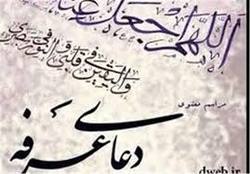 اللهم اجعل غنا
والیقین فی قلبی والنور فی بصری
مراسم معنوی
دعای عرفه
dweb.ir